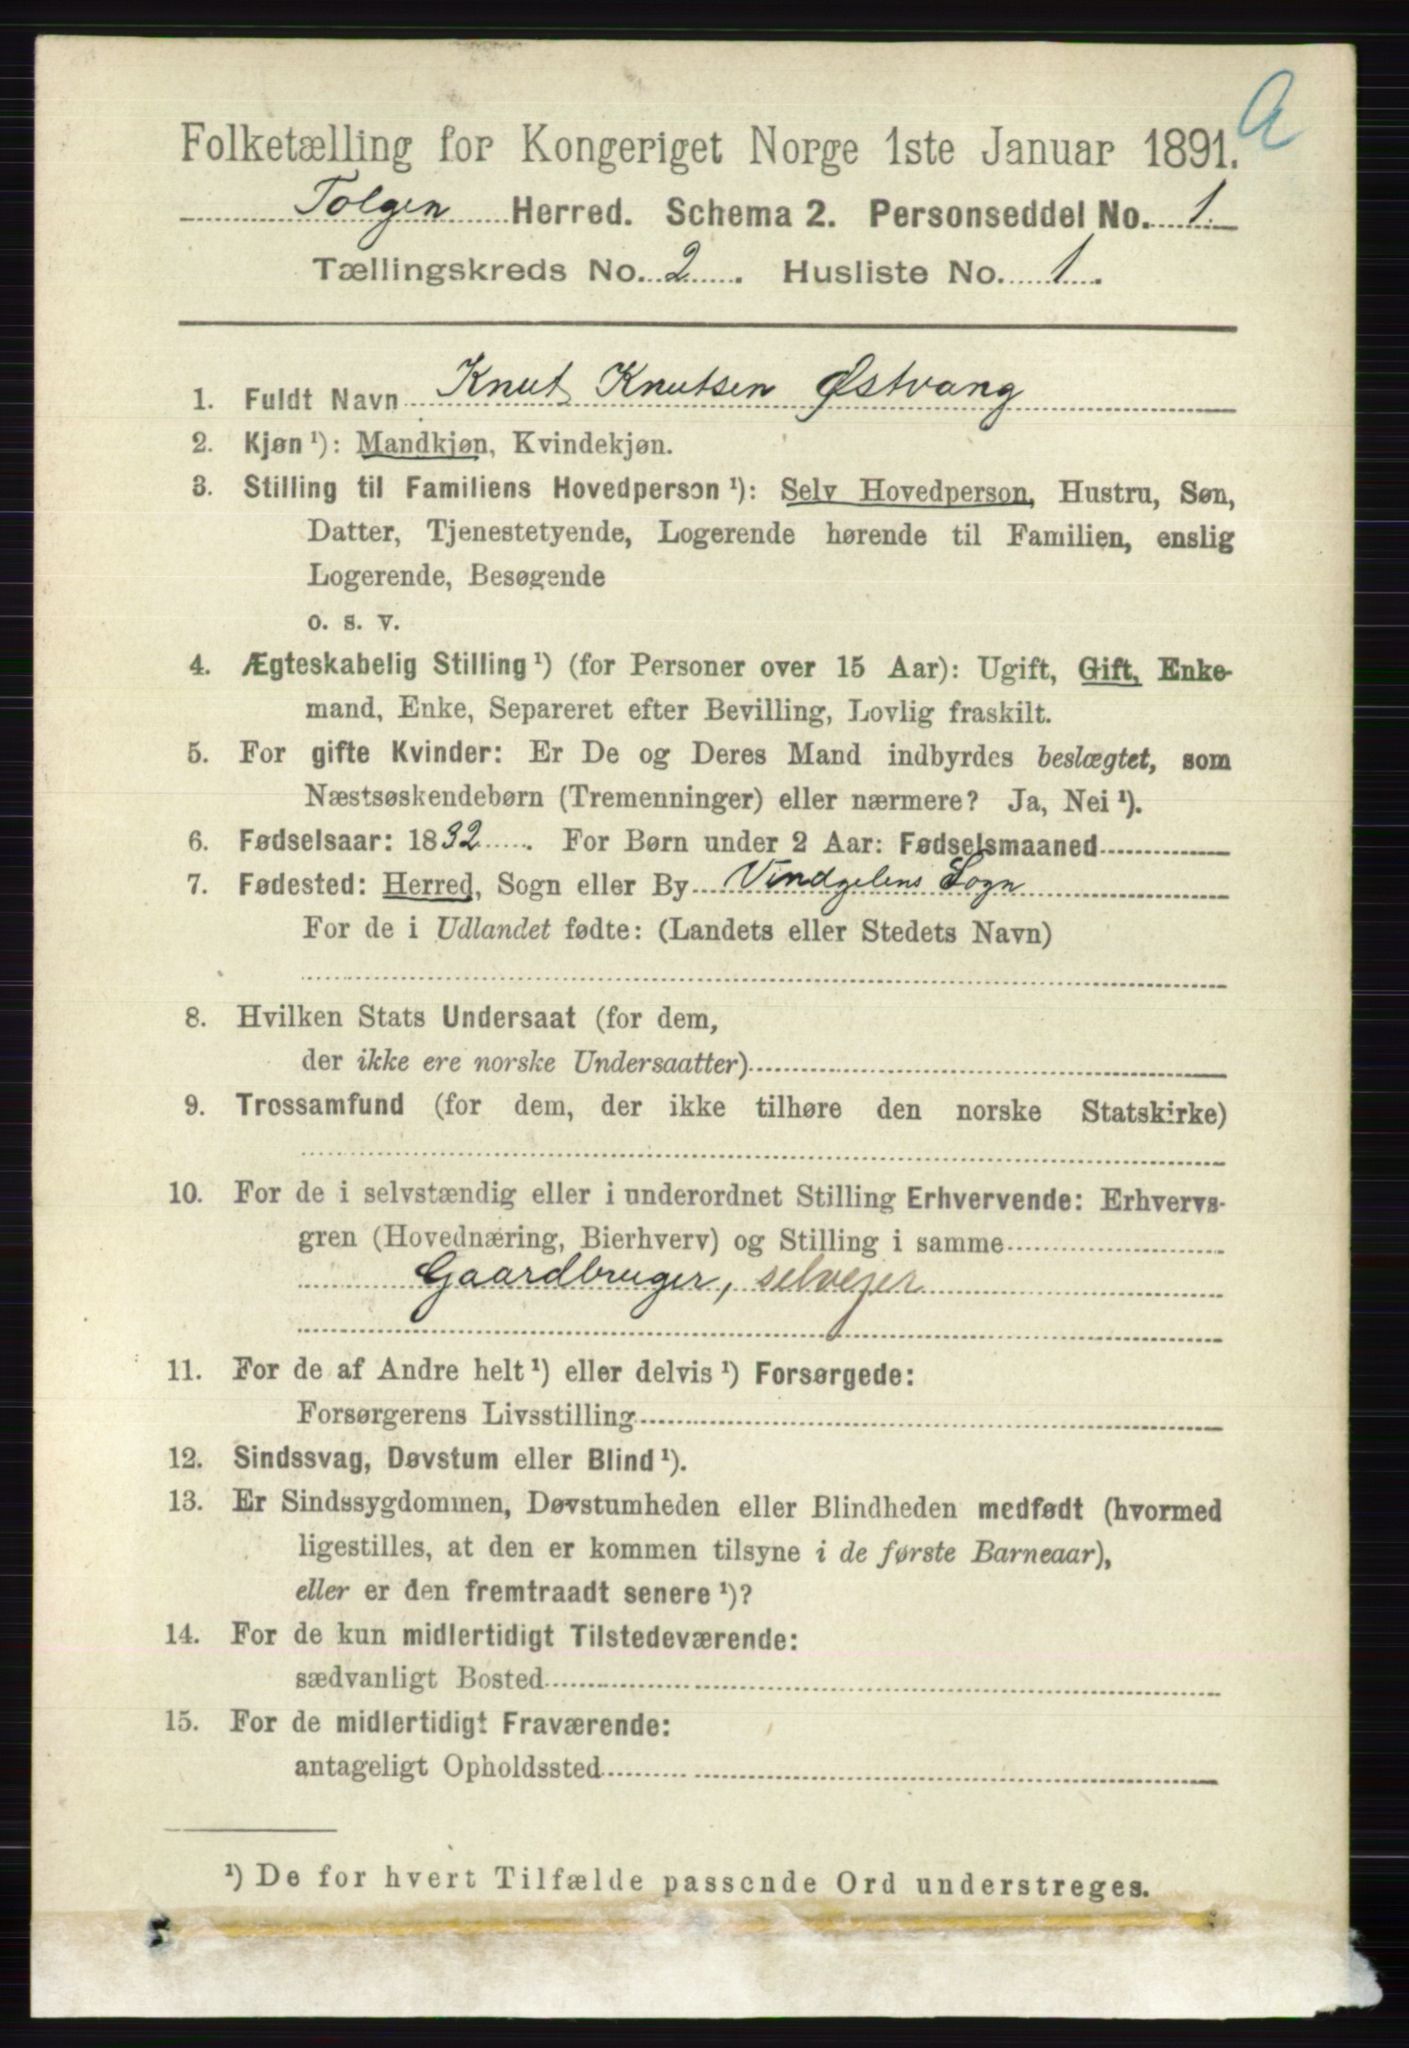 A
Folketælling for Kongeriget Norge 1ste Januar 1891.
Tolgen Herred. Schema 2. Personseddel No. 1.
Tællingskreds No. 2. Husliste No. 1.
1. Fuldt Navn Knut Knutsen Østvang
2. Kjøn ¹): Mandkjøn, Kvindekjøn.
3. Stilling til Familiens Hovedperson ¹): Selv Hovedperson, Hustru, Søn,
Datter, Tjenestetyende, Logerende hørende til Familien, enslig
Logerende, Besøgende
o. s. v.
4. Ægteskabelig Stilling ¹) (for Personer over 15 Aar): Ugift, Gift, Enke-
mand, Enke, Separeret efter Bevilling, Lovlig fraskilt.
5. For gifte Kvinder: Er De og Deres Mand indbyrdes beslægtet, som
Næstsøskendebørn (Tremenninger) eller nærmere? Ja, Nei ¹).
6. Fødselsaar: 1832. For Børn under 2 Aar: Fødselsmaaned
7. Fødested: Herred, Sogn eller By Vindgelens Sogn
For de i Udlandet fødte: (Landets eller Stedets Navn)
8. Hvilken Stats Undersaat (for dem,
der ikke ere norske Undersaatter)
9. Trossamfund (for dem, der ikke tilhøre den norske Statskirke)
10. For de i selvstændig eller i underordnet Stilling Erhvervende: Erhvervs-
gren (Hovednæring, Bierhverv) og Stilling i samme
Gaardbruger, selvejer
11. For de af Andre helt ¹) eller delvis ¹) Forsørgede:
Forsørgerens Livsstilling
12. Sindssvag, Døvstum eller Blind ¹).
13. Er Sindssygdommen, Døvstumheden eller Blindheden medfødt (hvormed
ligestilles, at den er kommen tilsyne i de første Barneaar),
eller er den fremtraadt senere ¹)?
14. For de kun midlertidigt Tilstedeværende:
sædvanligt Bosted
15. For de midlertidigt Fraværende:
antageligt Opholdssted
¹) De for hvert Tilfælde passende Ord understreges.